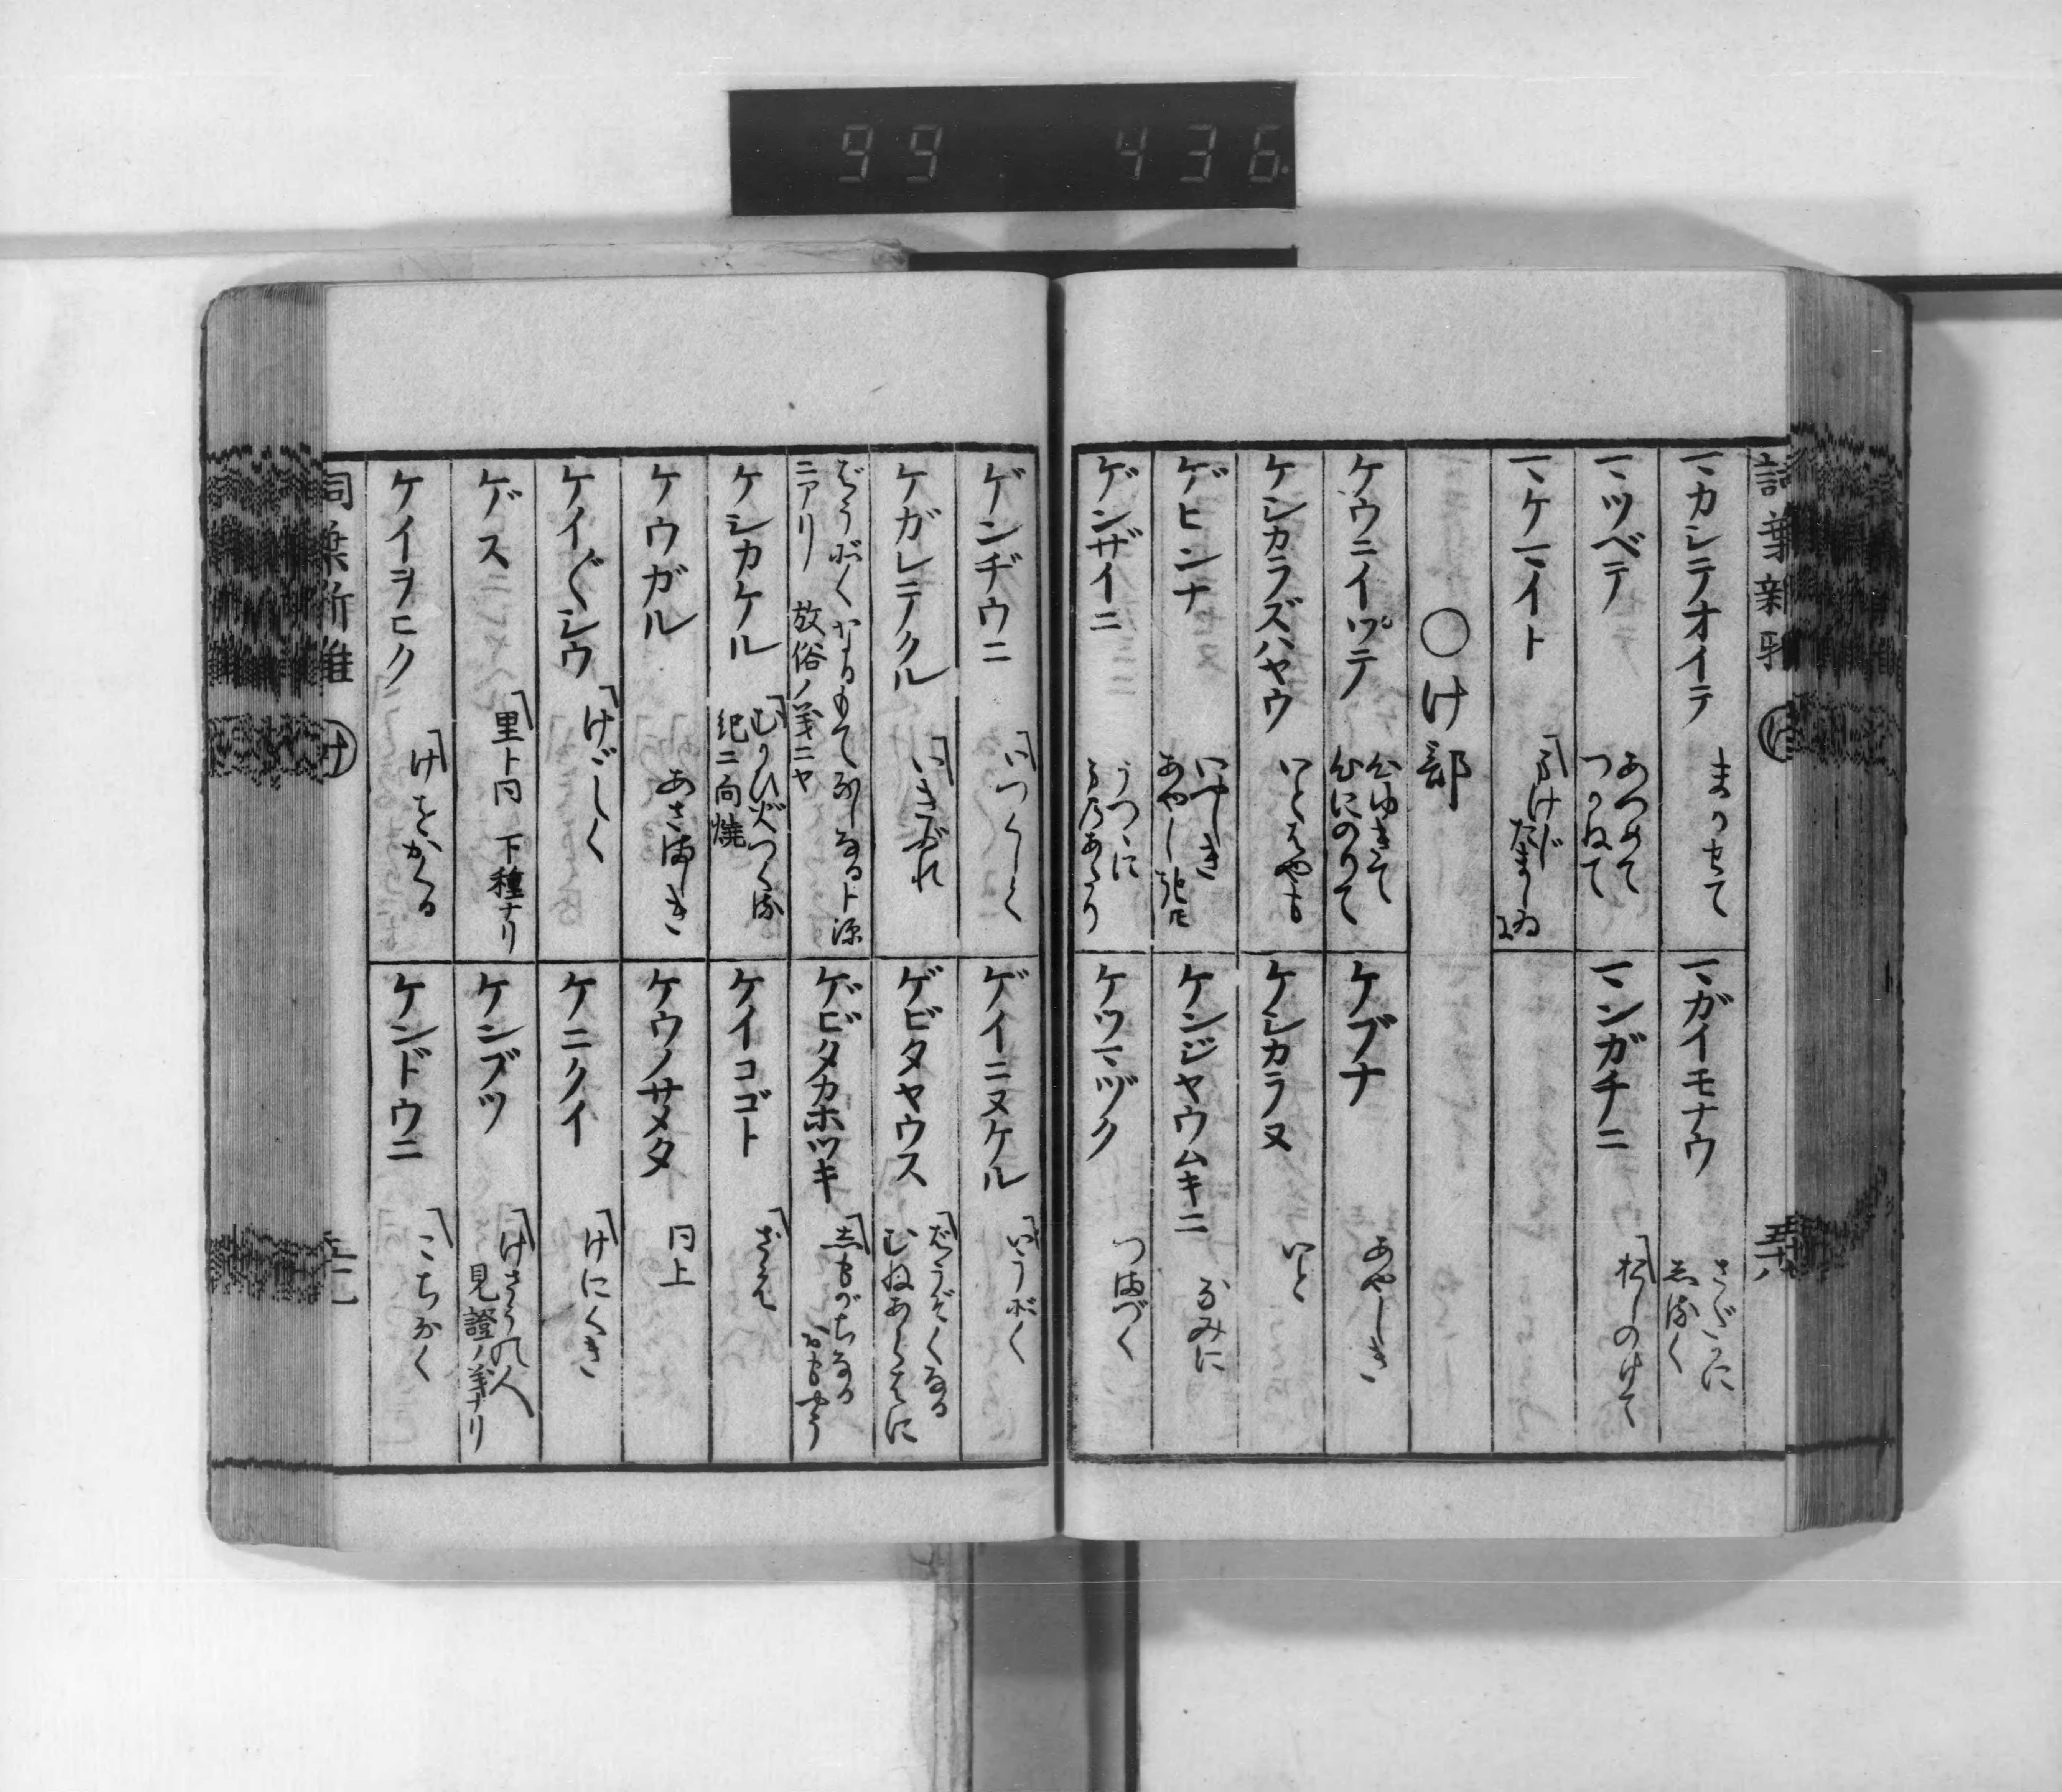 99 436
詞葉新雅
マカシテオイテ まかせて
マツベテ あつめて
つかねて
マケマイト まけじ
たましゐ
○け部
ケウニイツテ
ケシカラズハヤウ いとはやも
ゲヒンナ いやしき
ゲンザイニ うつゝに
マガイモナウ さだかに
しるく
マンガチニ おしのけて
ケブナ あやしき
ケシカラヌ いと
ケンジヤウムキニ
ケツマヅク つまづく
ゲンヂウニ いつくしく
ケガレテクル いきぶれ
ニアリ 放俗ノ義ニヤ
ケシカケル むかひ火つくる
紀ニ向焼
ケウガル あさましき
ケイ〲シウ けごしく
ゲス 里ト同 下種ナリ
ケイヲヒク けをかくる
ゲイニヌケル
ゲビタヤウス ばうぞくなる
むねあらはに
ゲビタカホツキ しもがちなる
おもやう
ケイコゴト ざえ
ケウノサメタ 同上
ケニクイ けにくき
ケンブツ けさうの人
見證ノ義ナリ
ケンドウニ こちなく
詞葉新雅
け